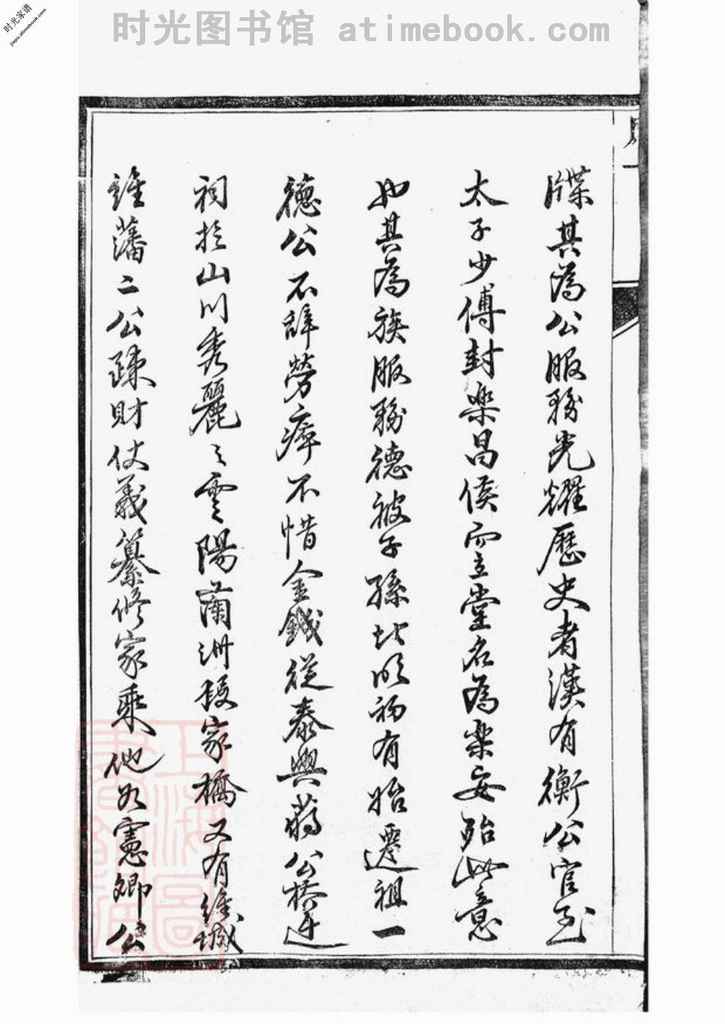 时光图书馆 atimebook.com
时光家谱
牒其為公服務光耀歷史者漢有衡公官至
太子少傅封樂昌侯而立堂名為樂安殆此意
也其為族服務德被子孫者明初有始遷祖一
德公不辞勞瘁不惜金錢從泰興蔣公橋遷
祠於山川秀麗之雲陽蘭洲後家橋又有維城
維藩二公疎財仗義纂修家乘他如憲卿公